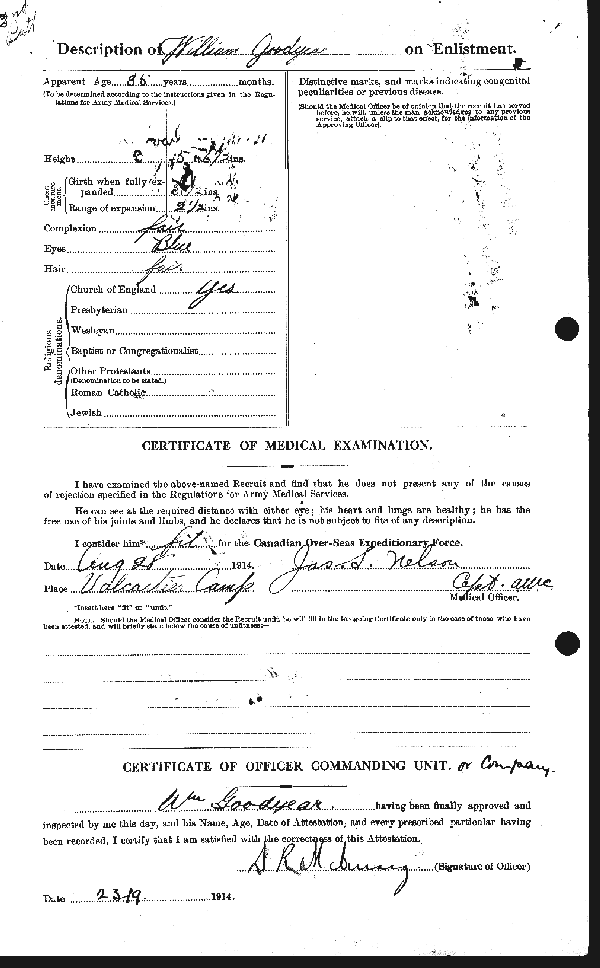 Description of William Goodyear on Enlistment.
Apparent Age 35 years months.
(To be determined according to the instructions given in the Regulations for Army Medical Services.)
Distinctive marks, and marks indicating congenital
peculiarities or previous disease.
(Should the Medical Officer be of opinion that the recruit has served
before, he will, unless the man acknowledges to any previous
service, attach a slip to that effect, for the information of the
Approving Officer).
Height ft. ins.
Chest measurement.
Girth when fully expanded ins.
Range of expansion 2 1/2 ins.
Complexion fair
Eyes Blue
Hair fair
Religious denominations.
Church of England yes
Presbyterian
Wesleyan
Baptist or Congregationalist
Other Protestants
(Denomination to be stated.)
Roman Catholic
Jewish
CERTIFICATE OF MEDICAL EXAMINATION.
I have examined the above-named Recruit and find that he does not present any of the causes
of rejection specified in the Regulations for Army Medical Services.
He can see at the required distance with either eye; his heart and lungs are healthy; he has the
free use of his joints and limbs, and he declares that he is not subject to fits of any description.
I consider him* fit for the Canadian Over-Seas Expeditionary Force.
Date Aug 28 1914. Jas. S. Nelson
Place Valcartier Camp Capt. AMC
Medical Officer.
*Insert here "fit" or "unfit."
NOTE. Should the Medical Officer consider the Recruit unfit, he will fill in the foregoing Certificate only in the case of those who have
been attested, and will briefly state below the cause of unfitness:—
CERTIFICATE OF OFFICER COMMANDING UNIT. or Company.
Wm Goodyear having been finally approved and
inspected by me this day, and his Name, Age, Date of Attestation, and every prescribed particular having
been recorded, I certify that I am satisfied with the correctness of this Attestation.
(Signature of Officer)
Date 23/9 1914.